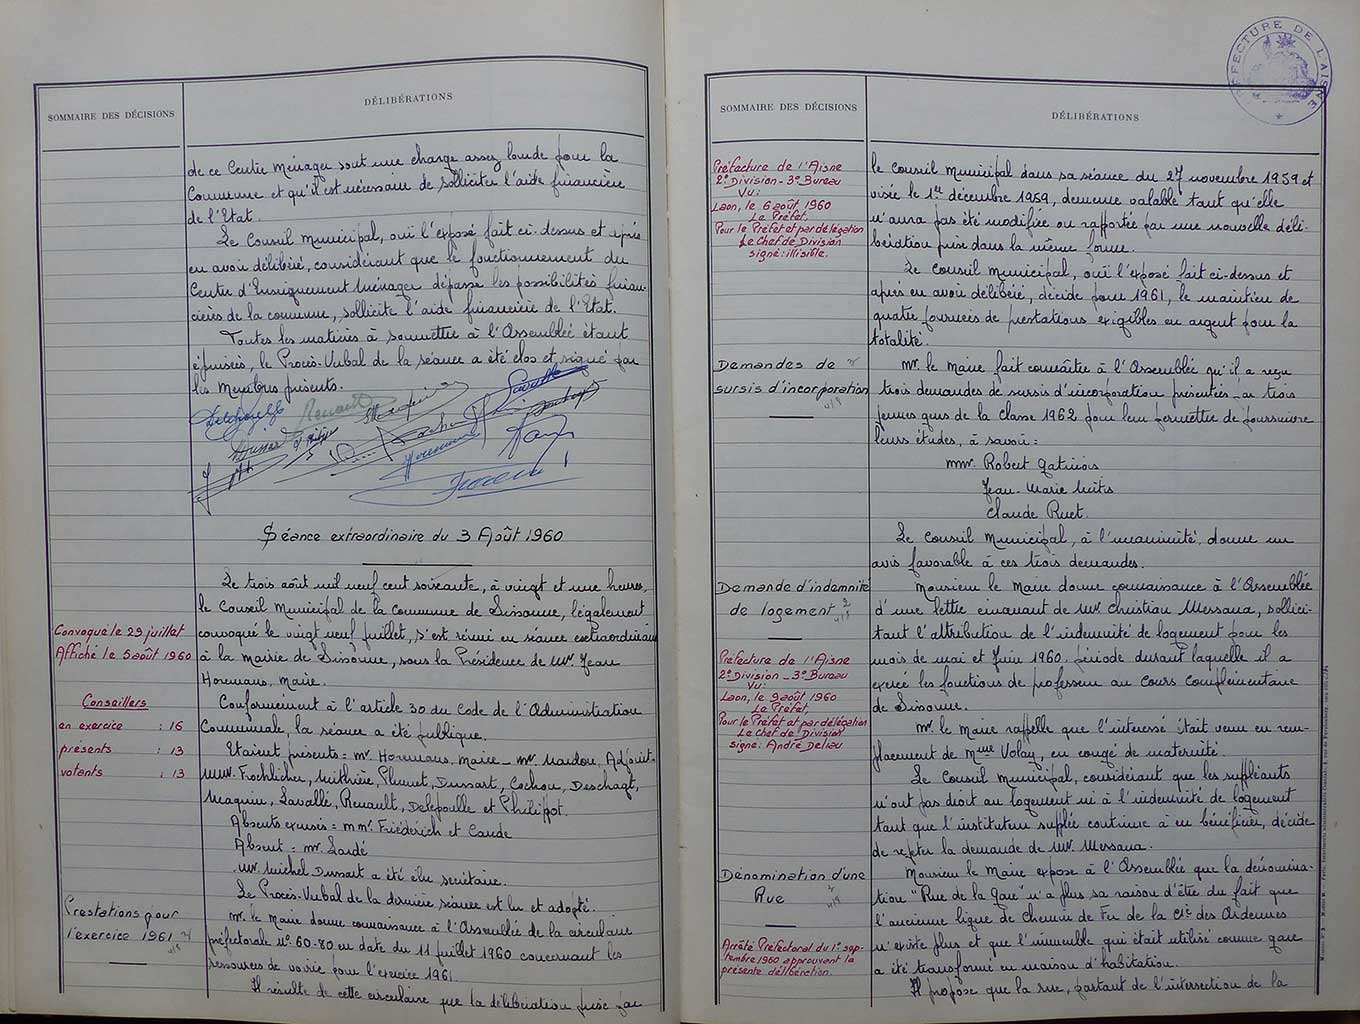 SOMMAIRE DES DÉCISIONS
DÉLIBÉRATIONS
de ce Centre Ménager sont une charge assez lourde pour la
Commune et qu'il est nécessaire de solliciter l'aide financière
de l'Etat.
Le Conseil Municipal, ouï l'exposé fait ci-dessus et après
en avoir délibéré, considérant que le fonctionnement du
Centre d'Enseignement Ménager dépasse les possibilités finan-
cières de la commune, sollicite l'aide financière de l'Etat.
Toutes les matières à soumettre à l'Assemblée étant
épuisées, le Procès-Verbal de la séance a été clos et signé par
les Membres présents.
Delepoulle Renault Lavallé
Séance extraordinaire du 3 Août 1960
Le trois août mil neuf cent soixante, à vingt et une heures,
le Conseil Municipal de la commune de Sissonne, légalement
Convoqué le 29 juillet
convoqué le vingt neuf juillet, s'est réuni en séance extraordinaire
Affiché le 5 août 1960
à la mairie de Sissonne, sous la Présidence de Mr. Jean
Horemans, Maire.
Conseillers
en exercice : 16
présents : 13
votants : 13
Conformément à l'article 30 du Code de l'Administration
Communale, la séance a été publique.
Etaient présents = Mr. Horemans, Maire - Mr Nardou, Adjoint-
MM. Froehlicher, Mithière, Plumet, Dussart, Cochou, Deschagt,
Maquin, Lavallé, Renault, Delepoulle et Philippot.
Absents excusés = MMr. Friédérich et Caude
Absent = Mr. Lardé
Mr. Michel Dussart a été élu secrétaire.
Le Procès-Verbal de la dernière séance est lu et adopté.
Prestations pour
l'exercice 1961
Mr. le Maire donne connaissance à l'Assemblée de la circulaire
préfectorale N° 60-80 en date du 11 juillet 1960 concernant les
ressources de voirie pour l'exercice 1961.
Il résulte de cette circulaire que la délibération prise par
PRÉFECTURE DE L'AISNE
SOMMAIRE DES DÉCISIONS
DÉLIBÉRATIONS
Préfecture de l'Aisne
2e Division - 3e Bureau
Vu:
Laon, le 6 août 1960
Le Préfet,
Pour le Préfet et par délégation
Le Chef de Division
signé: illisible.
le Conseil Municipal dans sa séance du 27 novembre 1959 et
visée le 1er décembre 1959, demeure valable tant qu'elle
n'aura pas été modifiée ou rapportée par une nouvelle déli-
bération prise dans la même forme.
Le Conseil Municipal, ouï l'exposé fait ci-dessus et
après en avoir délibéré, décide pour 1961, le maintien de
quatre journées de prestations exigibles en argent pour la
totalité.
Demandes de
sursis d'incorporation
Mr. le Maire fait connaître à l'Assemblée qu'il a reçu
trois demandes de sursis d'incorporation présentées par trois
jeunes gens de la classe 1962 pour leur permettre de poursuivre
leurs études, à savoir :
MMr. Robert Gatinois
Jean-Marie Mütis
Claude Ruet.
Le Conseil Municipal, à l'unanimité, donne un
avis favorable à ces trois demandes.
Demande d'indemnité
de logement
Monsieur le Maire donne connaissance à l'Assemblée
d'une lettre émanant de Mr. Christian Messana, sollici-
tant l'attribution de l'indemnité de logement pour les
mois de mai et Juin 1960, période durant laquelle il a
exercé les fonctions de professeur au Cours Complémentaire
de Sissonne.
Préfecture de l'Aisne
2e Division - 3e Bureau
Vu:
Laon, le 9 août 1960
Le Préfet,
Pour le Préfet et par délégation
Le Chef de Division
signé: André Deliau
Mr. le Maire rappelle que l'intéressé était venu en rem-
placement de Mme Volay, en congé de maternité.
Le Conseil Municipal, considérant que les suppléants
n'ont pas droit au logement ni à l'indemnité de logement
tant que l'instituteur supplée continue à en bénéficier, décide
de rejeter la demande de Mr. Messana.
Dénomination d'une
Rue
Monsieur le Maire expose à l'Assemblée que la dénomina-
tion "Rue de la Gare" n'a plus sa raison d'être du fait que
l'ancienne ligne de Chemin de Fer de la Cie des Ardennes
n'existe plus et que l'immeuble qui était utilisé comme gare
a été transformé en maison d'habitation.
Arrêté Préfectoral du 1er sep-
tembre 1960 approuvant la
présente délibération.
Il propose que la rue, partant de l'intersection de la